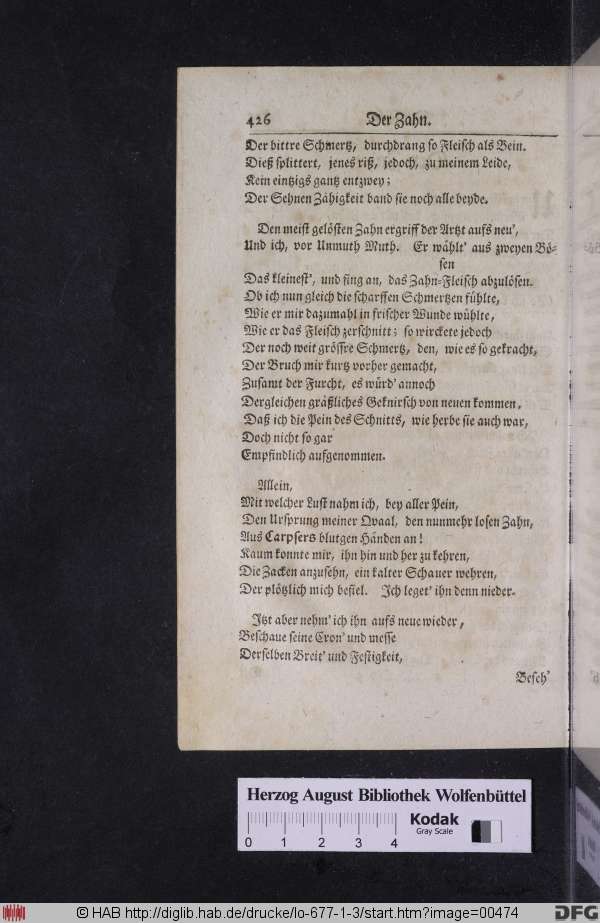 426 Der Zahn.
Der bittre Schmertz, durchdrang so Fleisch als Bein.
Dieß splittert, jenes riß, jedoch, zu meinem Leide,
Kein eintzigs gantz entzwey;
Der Sehnen Zähigkeit band sie noch alle beyde.
Den meist gelösten Zahn ergriff der Artzt aufs neu',
Und ich, vor Unmuth Muth. Er wählt' aus zweyen Bö-
sen
Das kleinest', und fing an, das Zahn-Fleisch abzulösen.
Ob ich nun gleich die scharffen Schmertzen fühlte,
Wie er mir dazumahl in frischer Wunde wühlte,
Wie er das Fleisch zerschnitt; so wirckete jedoch
Der noch weit grössre Schmertz, den, wie es so gekracht,
Der Bruch mir kurtz vorher gemacht,
Zusamt der Furcht, es würd' annoch
Dergleichen gräßliches Geknirsch von neuen kommen,
Daß ich die Pein des Schnitts, wie herbe sie auch war,
Doch nicht so gar
Empfindlich aufgenommen.
Allein,
Mit welcher Lust nahm ich, bey aller Pein,
Den Ursprung meiner Qvaal, den nunmehr losen Zahn,
Aus Carpsers blutgen Händen an!
Kaum konnte mir, ihn hin und her zu kehren,
Die Zacken anzusehn, ein kalter Schauer wehren,
Der plötzlich mich befiel. Ich leget' ihn denn nieder.
Itzt aber nehm' ich ihn aufs neue wieder,
Beschaue seine Cron' und messe
Derselben Breit' und Festigkeit,
Beseh'
Herzog August Bibliothek Wolfenbüttel
Kodak
Gray Scale
0 1 2 3 4
© HAB http://diglib.hab.de/drucke/lo-677-1-3/start.htm?image=00474
DFG